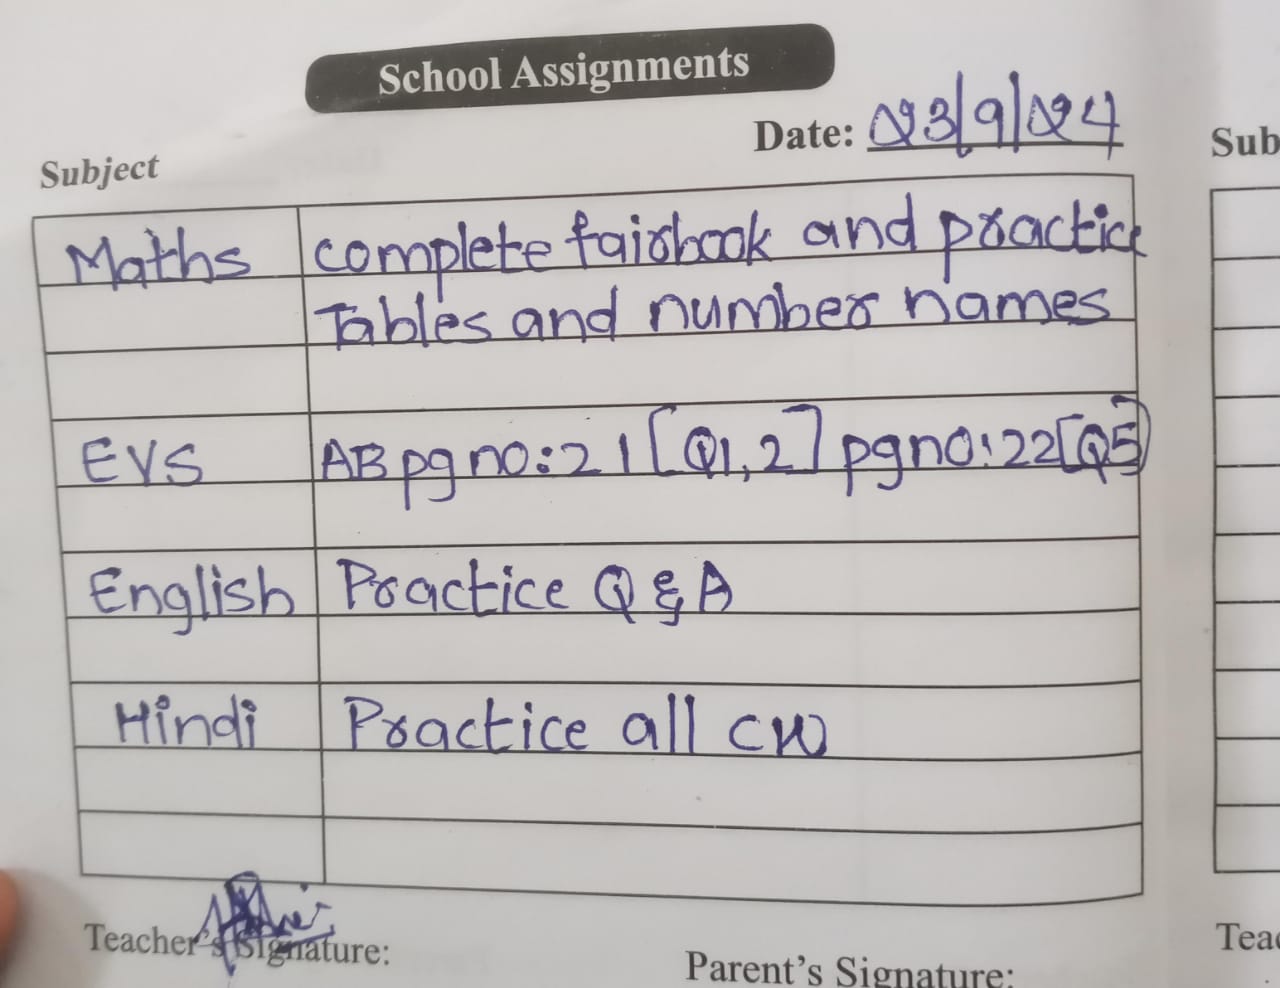 School Assignments
Date: 23/9/24
Subject
Maths complete fairbook and practice
Tables and number names
EVS AB pg no: 21 [Q1, 2] pg no: 22 [Q5]
English Practice Q & A
Hindi Practice all cw
Teacher's Signature:
Parent's Signature:
Sub
Teac